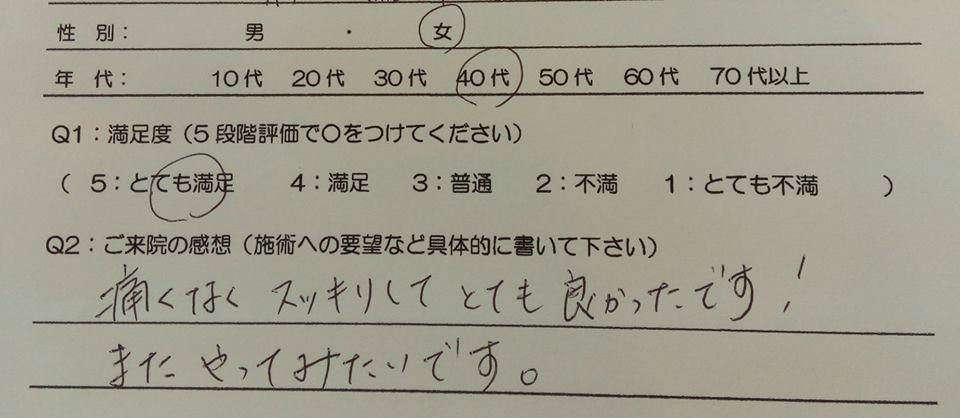 性 別： 男 ・ 女
年 代： 10代 20代 30代 40代 50代 60代 70代以上
Q1：満足度（5段階評価で〇をつけてください）
（ 5：とても満足 4：満足 3：普通 2：不満 1：とても不満 ）
Q2：ご来院の感想（施術への要望など具体的に書いて下さい）
痛くなく スッキリして とても 良かったです！
また やってみたいです。